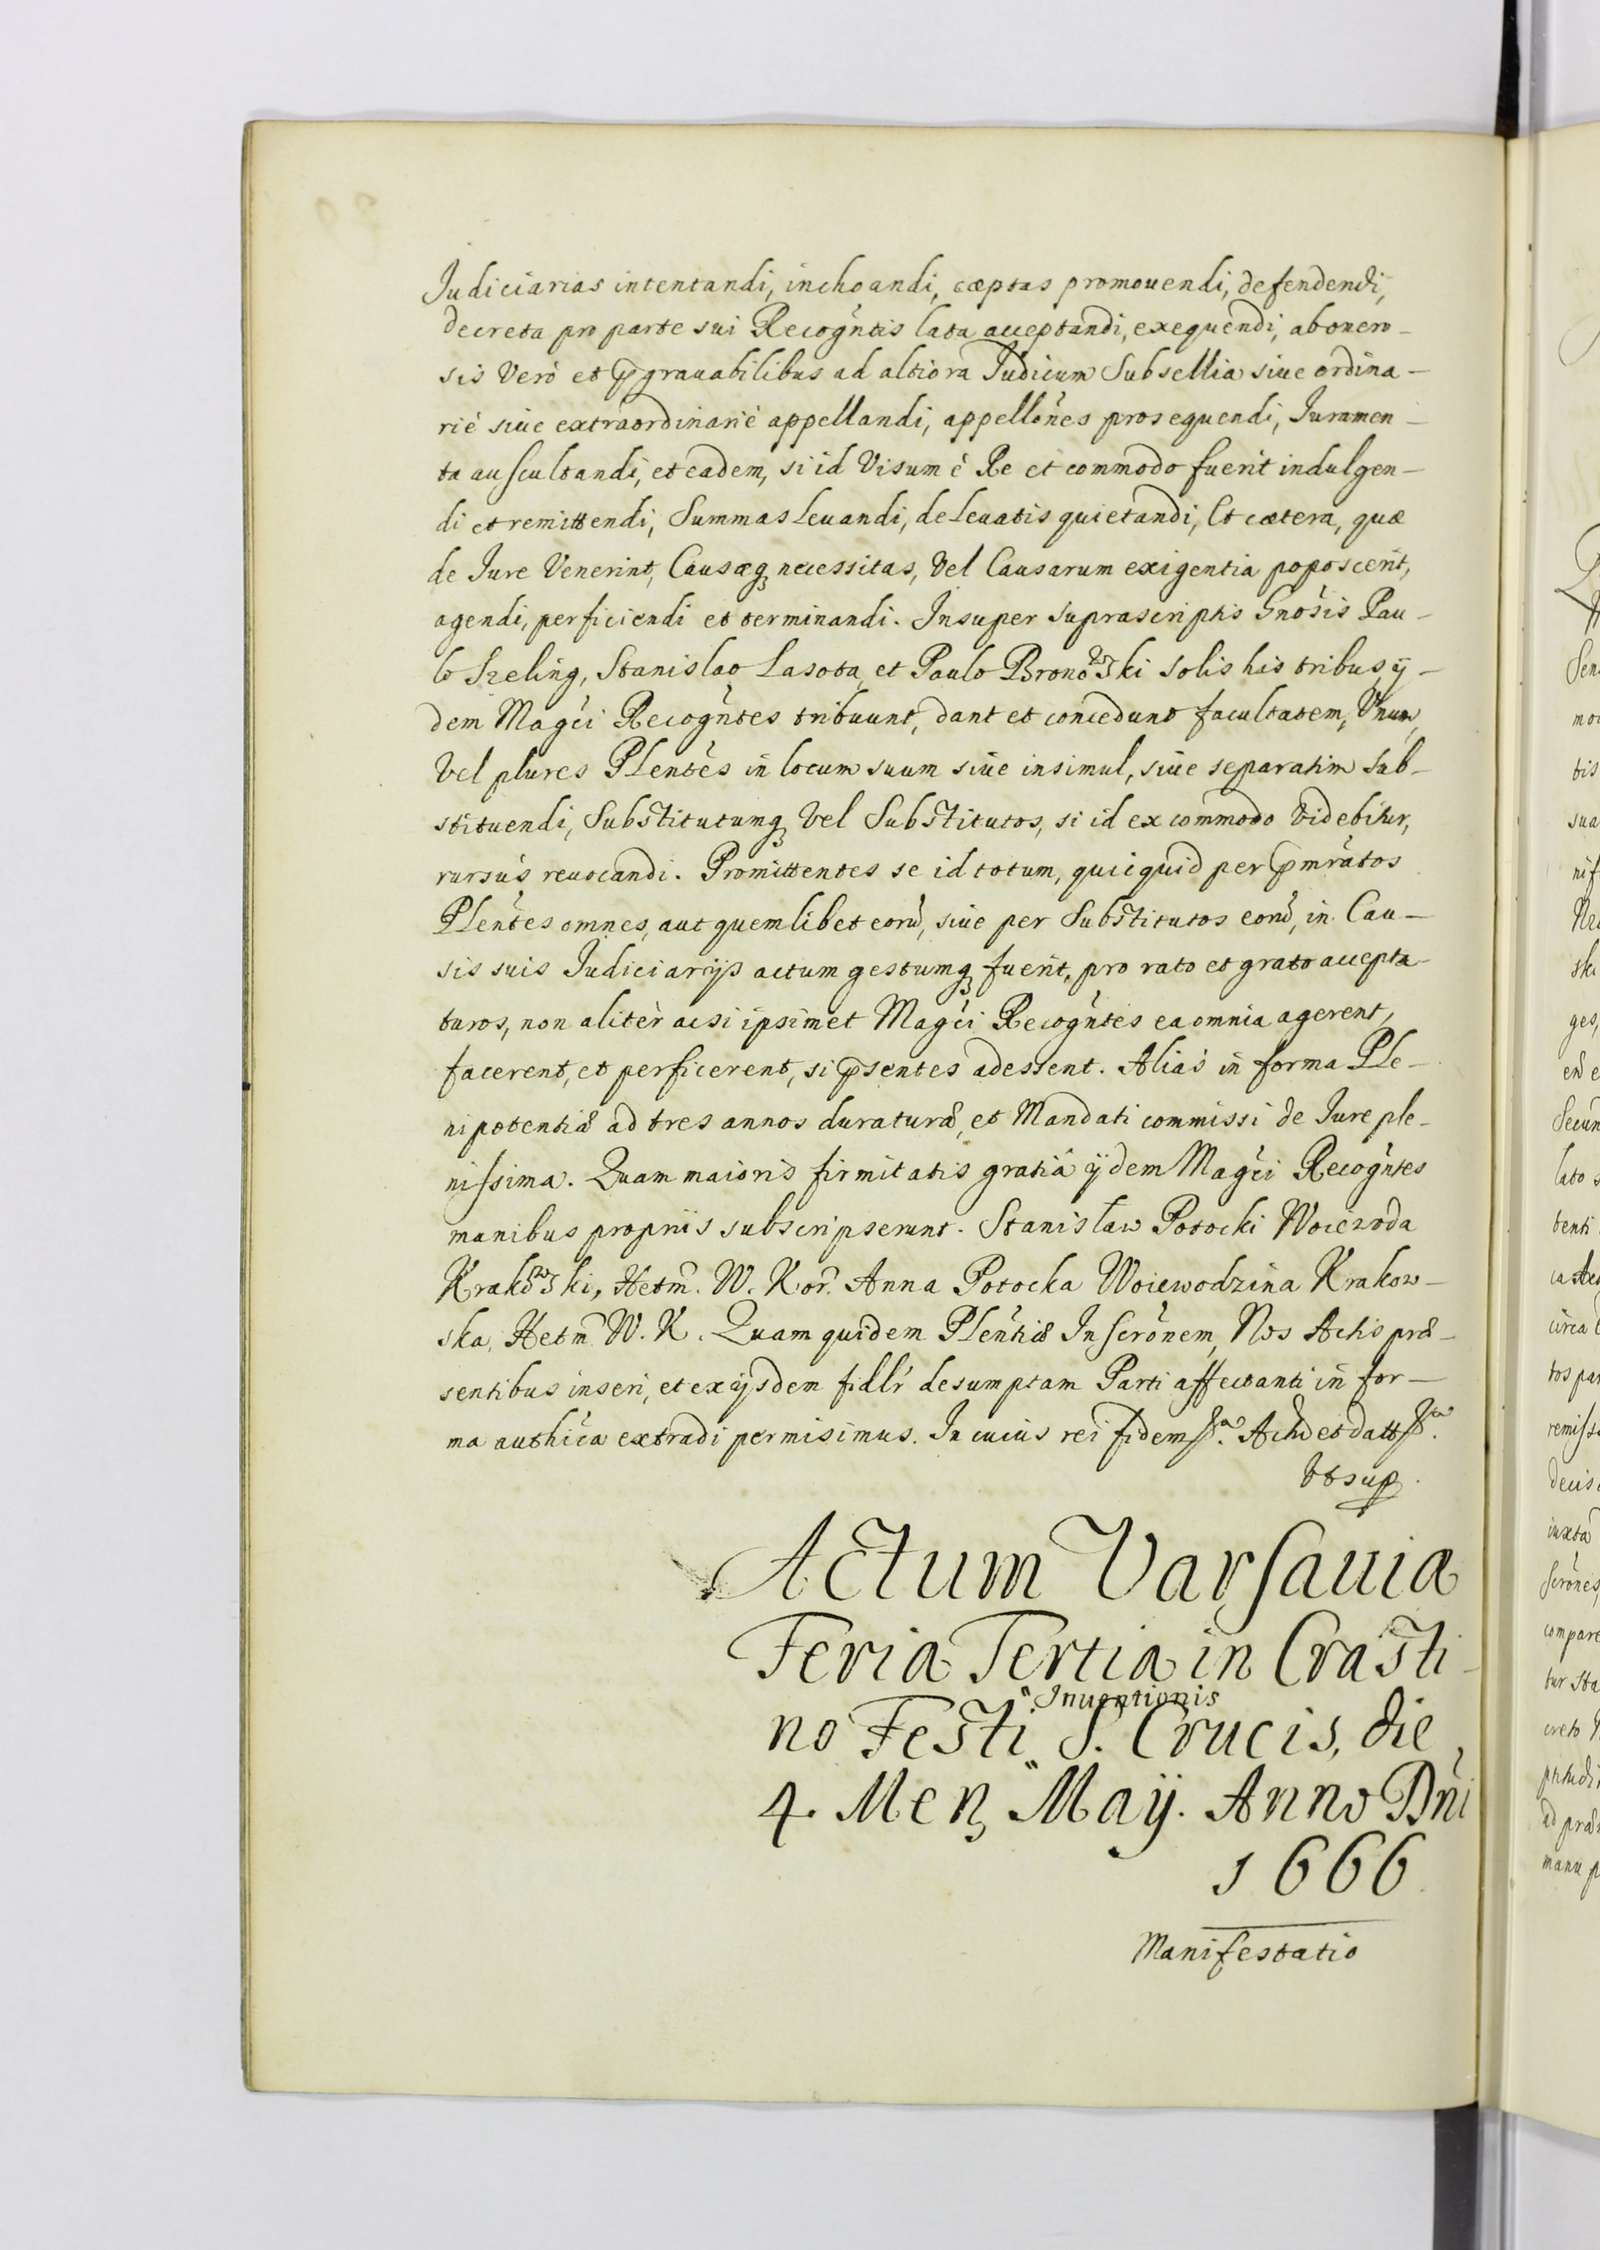 Judiciarias intentandi, inchoandi, cæptas promouendi, defendendi,
decreta pro parte sui Recogñtis lata acceptandi, exequendi, ab onero-
sis Verò et p̱grauabilibus ad altiora Judicum Subsellia siue ordina-
riè siue extraordinariè appellandi, appellões prosequendi, Juramen-
ta auscultandi, et eadem, si id Visum è Re et commodo fuerit indulgen-
di et remittendi, Summas leuandi, de leuatis quietandi, Et cætera, quæ
de Jure Venerint, Causæq₃ necessitas, Vel Causarum exigentia poposcerit,
agendi, perficiendi et terminandi. Insuper suprascriptis Gnosis Pau-
lo Szeling, Stanislao Lasota, et Paulo Bronowski solis his tribus, ij-
dem Magci Recogñtes tribuunt, dant et concedunt facultatem, Vnum,
Vel plures Plentes in locum suum siue insimul, siue separatim Sub-
stituendi, Substitutumq₃ Vel Substitutos, si id ex commodo Videbitur,
rursùs reuocandi. Promittentes se id totum, quicquid per p̱mratos
Plentes omnes, aut quemlibet eorũ, siue per Substitutos eorũ, in Cau-
sis suis Judiciarijs actum gestumq₃ fuerit, pro rato et grato accepta-
turos, non alitèr acsi ipsimet Magci Recogñtes ea omnia agerent,
facerent, et perficerent, si p̱sentes adessent. Aliàs in forma Ple-
nipotentiæ ad tres annos duraturæ, et Mandati commissi de Jure ple-
nissima. Quam maioris firmitatis gratiâ ijdem Magci Recogñtes
manibus proprijs subscripserunt. Stanisław Potocki Woiewoda
Krakowski, Hetm̃. W. Kor̃. Anna Potocka Woiewodzina Krakow-
ska, Hetm̃ W. K. Quam quidem Plentiæ Inscrõnem, Nos Actis præ-
sentibus inseri, et ex ijsdem fidlr desumptam Parti affectanti in for-
ma authica extradi permisimus. In cuius rei fidem &ca. Actũ et datt &ca.
Vt sup̱.
Actum Varsauiæ
Feria Tertia in Crasti-
Inuentionis
no Festi S. Crucis, die
4. Men₃ Maij. Anno Dñi
1666
Manifestatio